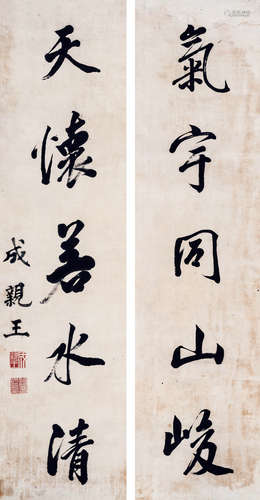 氣宇同山峻
天懷若水清
成親王